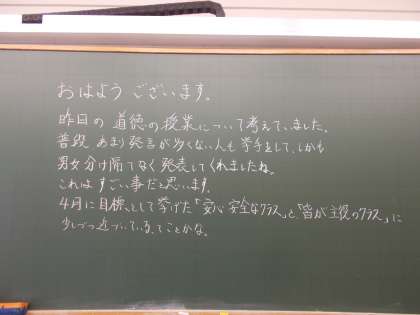 おはようございます。
昨日の道徳の授業について考えていました。
普段あまり発言が多くない人も挙手をして、しかも
男女分け隔てなく発表してくれましたね。
これはすごい事だと思います。
4月に目標として挙げた「安心安全なクラス」と、「皆が主役のクラス」に
少しづつ近づいている、てことかな。